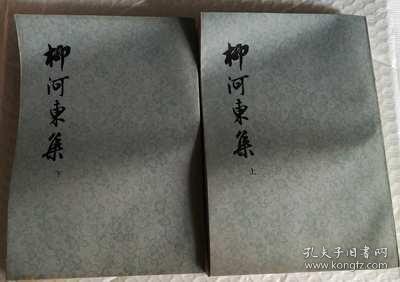 柳河東集
下
柳河東集
上
孔夫子旧书网
www.kongfz.com